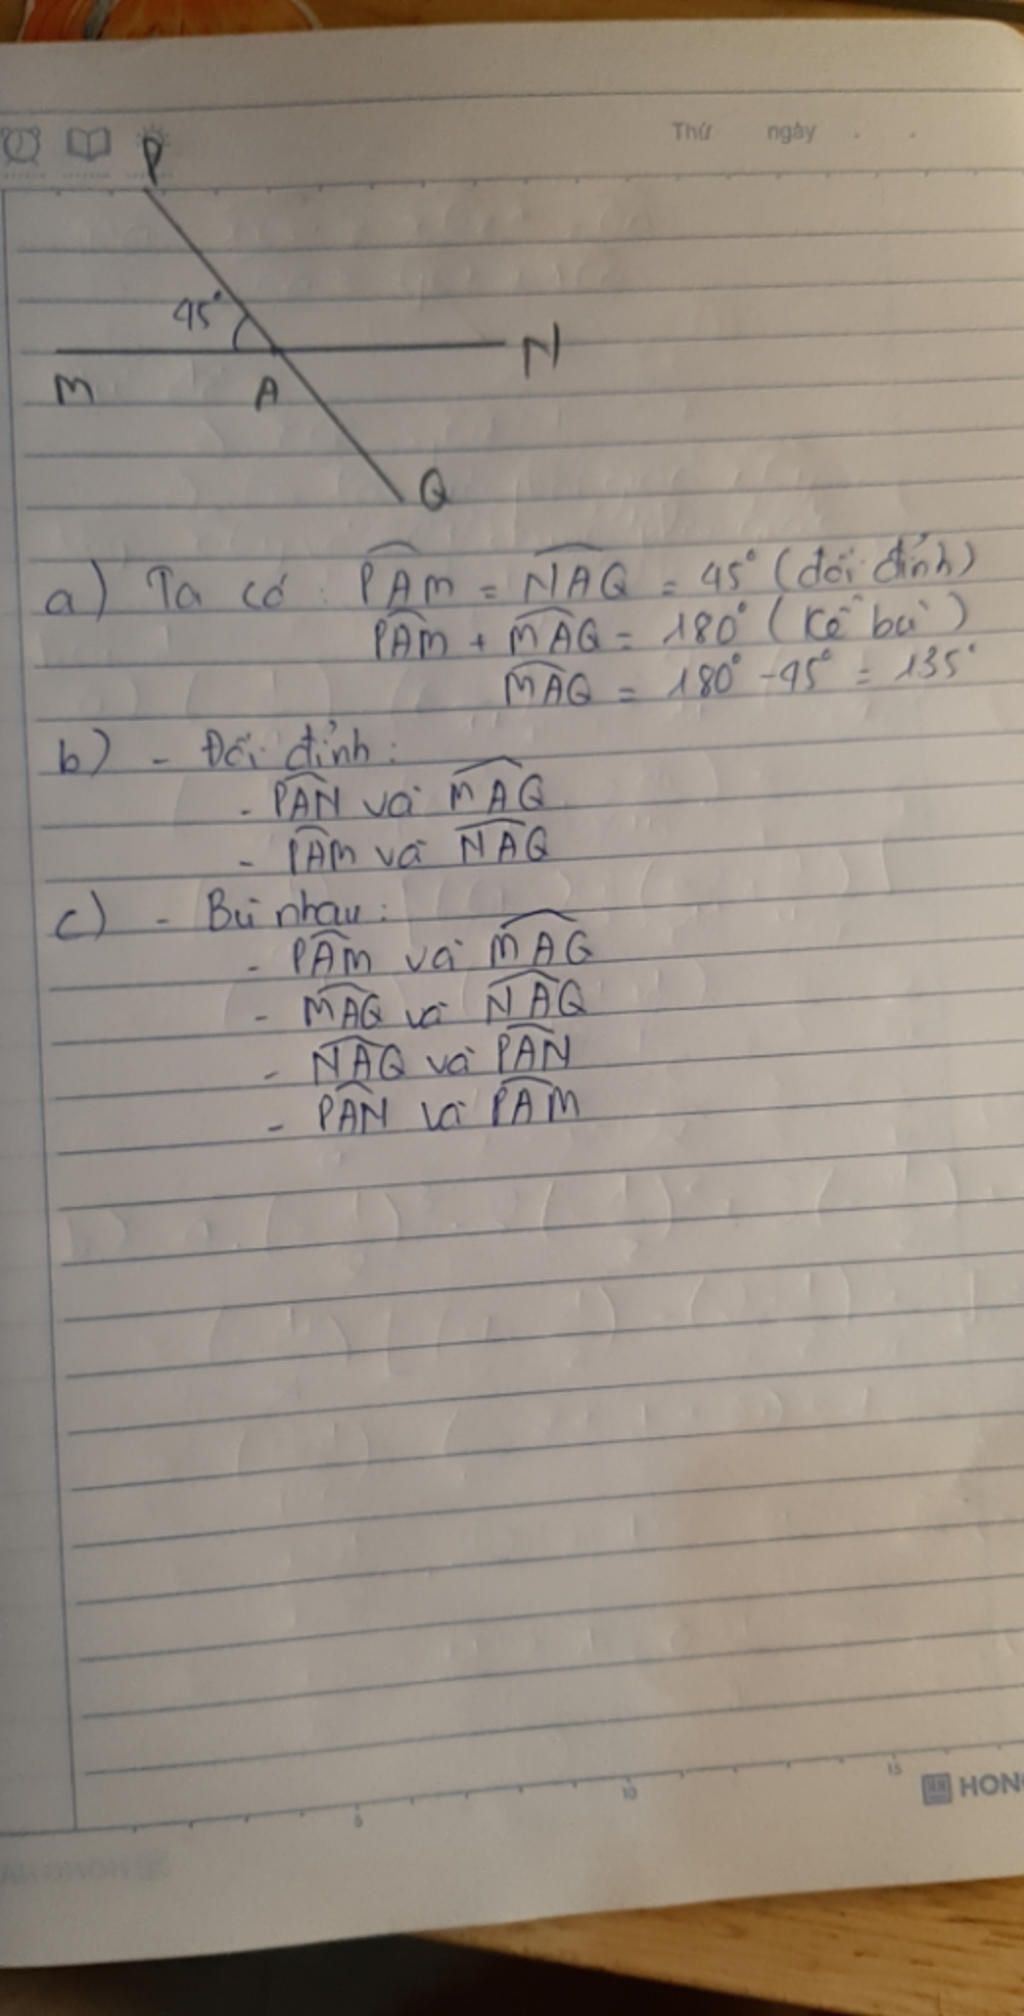 Thứ ngày . .
P
45°
M A N
Q
a) Ta có : PAM = NAQ = 45° (đối đỉnh)
PAM + MAQ = 180° (kề bù)
MAQ = 180° - 45° = 135°
b) - Đối đỉnh :
- PAN và MAQ
- PAM và NAQ
c) - Bù nhau :
- PAM và MAQ
- MAQ và NAQ
- NAQ và PAN
- PAN và PAM
5 10 15
HON